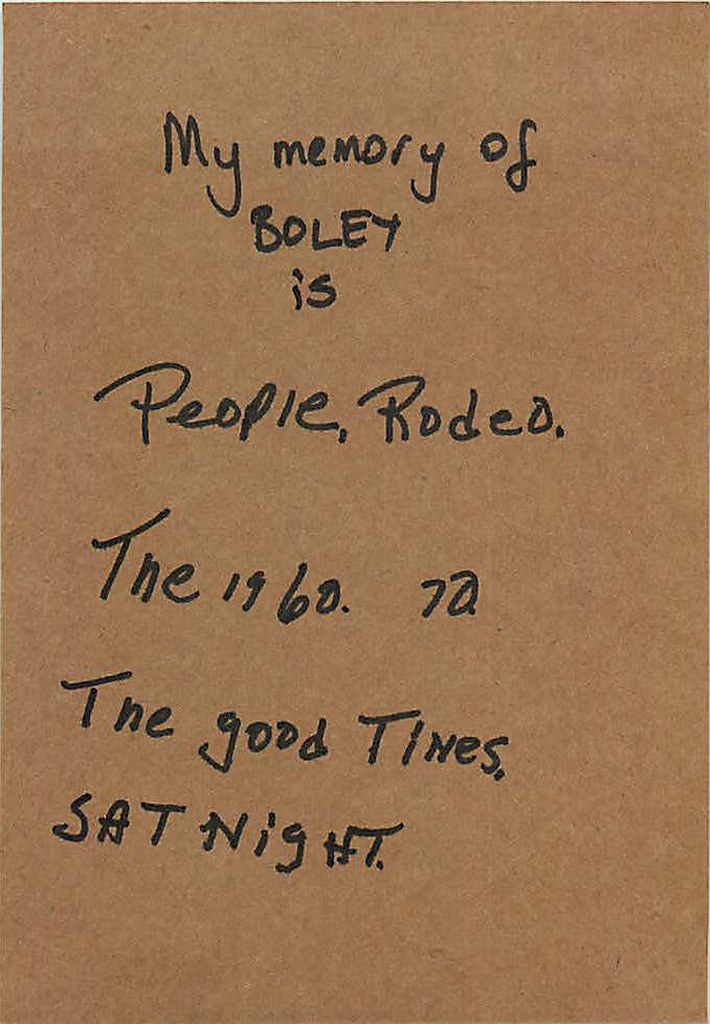 My memory of
BOLEY
is
People, Rodeo.
The 1960. 70.
The good Times.
SAT NigHT.